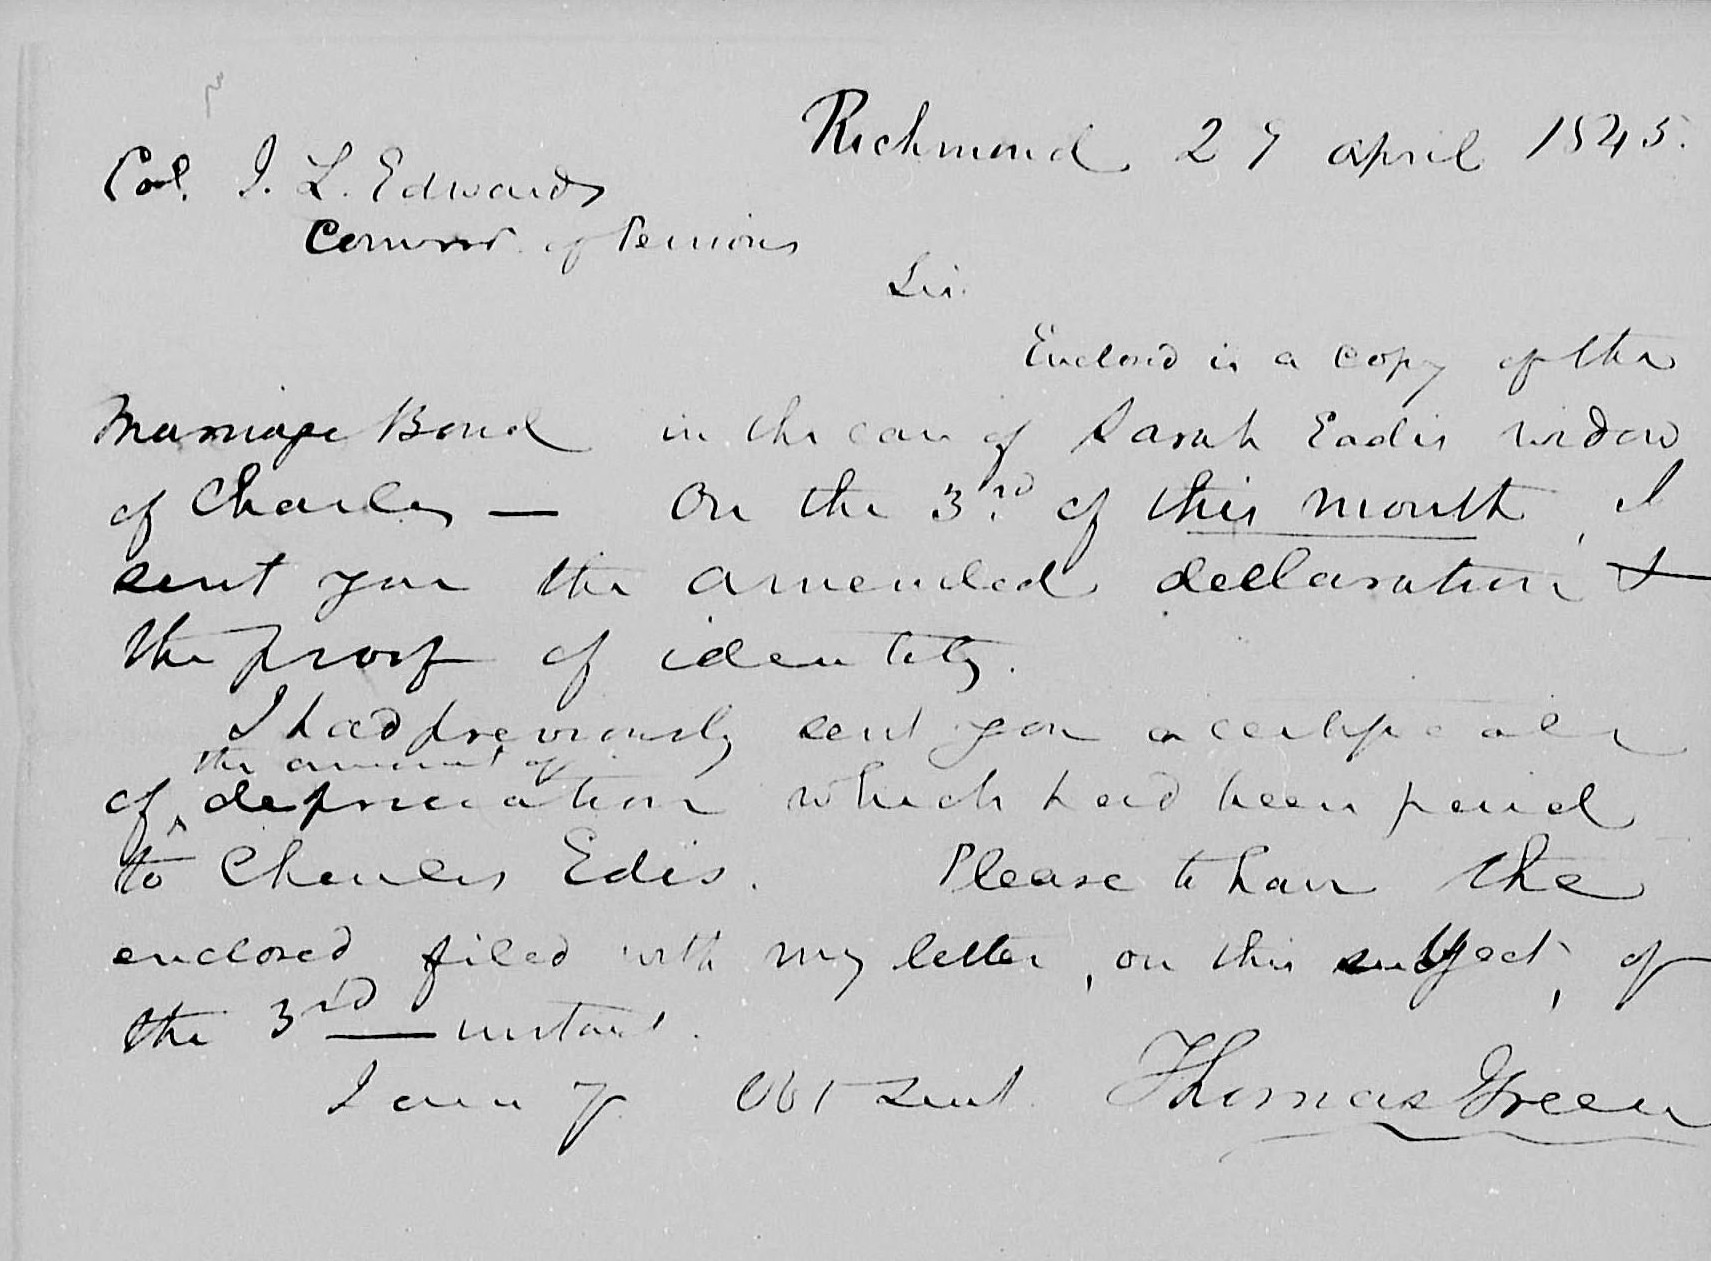 Richmond 29 April 1845.
Col. J. L. Edwards
Commr. of Pensions
Sir.
Enclosd is a copy of the
Marriage Bond in the case of Sarah Eadis widow
of Charles — On the 3rd of this month, I
sent you the amended declaration &
the proof of identity.
I had previously sent you a certificate
the amount of
of depreciation which had been paid
to Charles Edis. Please to have the
enclosed filed with my letter, on this subject, of
the 3rd — instant.
I am yr Obt Servt Thomas Green